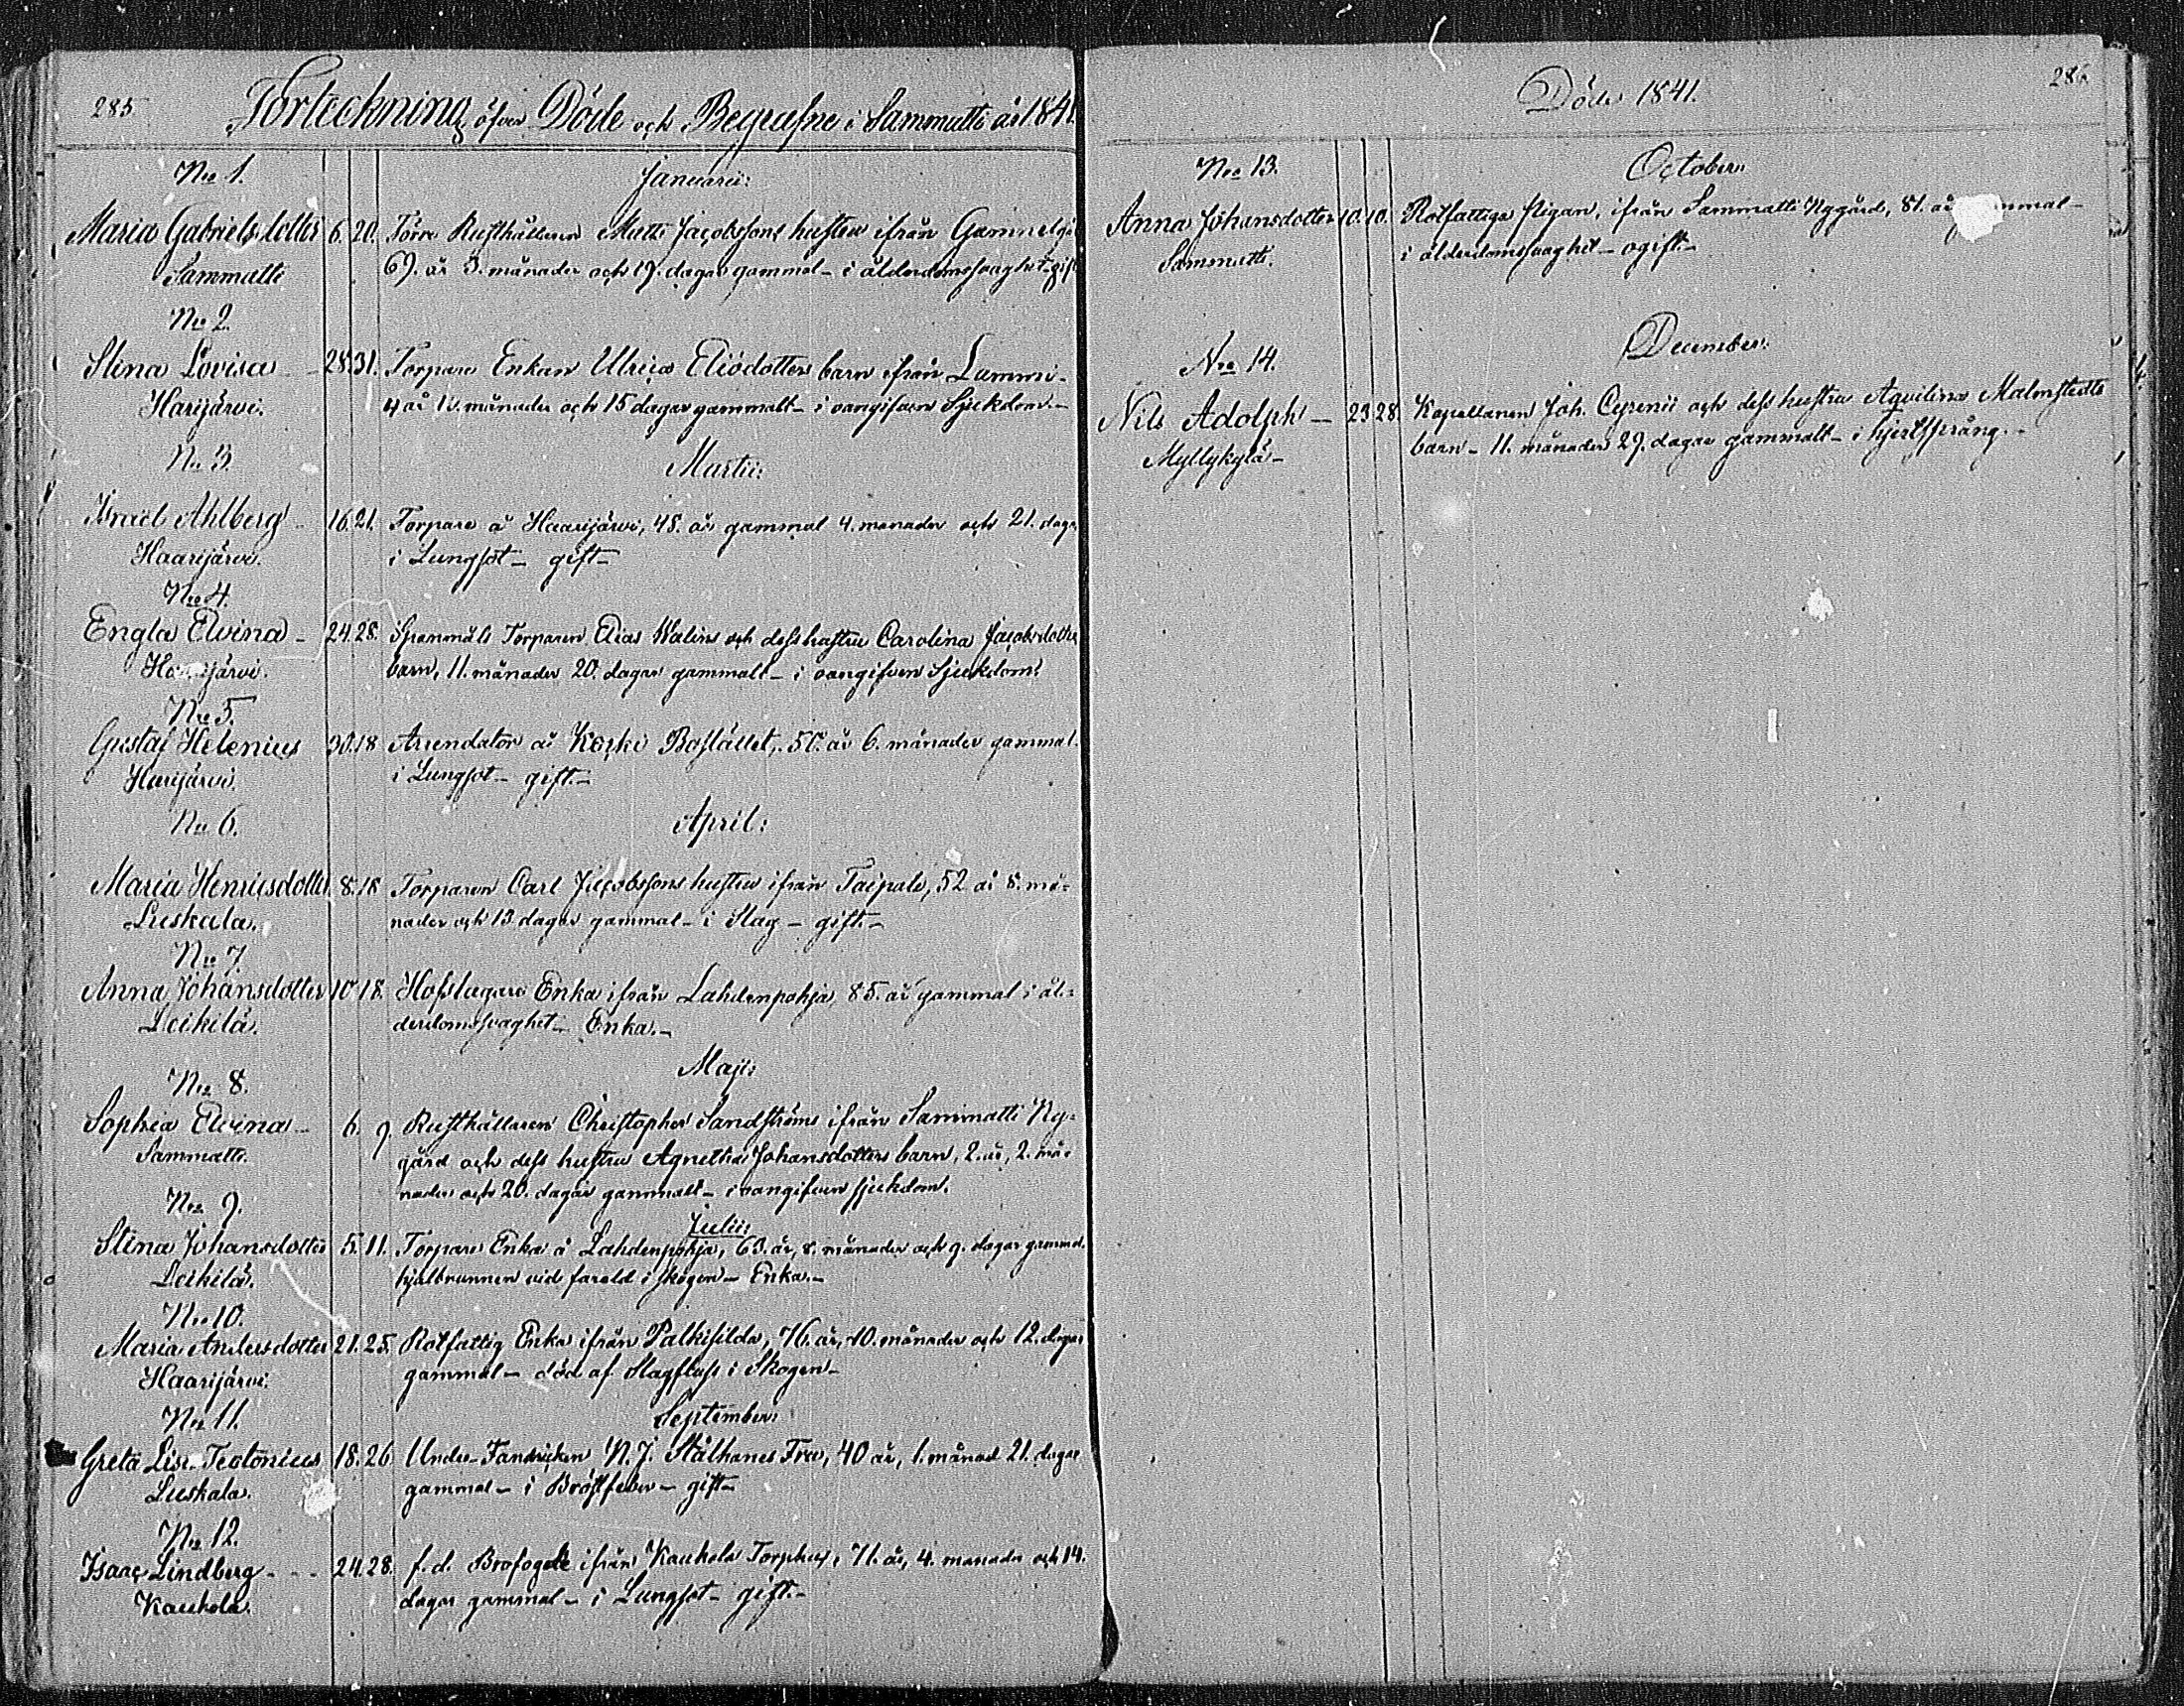 285
Förteckning öfver Döde och Begrafne i Sammatti år 1841
No 1.
Januarii:
Maria Gabrielsdotter 6. 20. Förre Rusthållaren Matts Jacobssons hustru ifrån Gammelgår
Sammatti 69. år 3. månader och 19. dagar gammal - i ålderdomssvaghet - gift
No 2.
Stina Lovisa - 28. 31. Torpare Enkan Ulrica Eliædotters barn ifrån Lammi -
Harijärvi. 4 år 10. månader och 15 dagar gammalt - i oangifven Sjukdom. -
No 3.
Martii:
Israel Ahlberg - 16. 21. Torpare å Haarijärvi, 48. år gammal 4. månader och 21. daga
Haarijärvi. i Lungsot - gift -
No 4.
Engla Elvina - 24. 28. Spannmåls Torparen Elias Walins och dess hustru Carolina Jacobsdotters
Haarijärvi. barn, 11. månader 20. dagar gammalt - i oangifven Sjukdom.
No 5.
Gustaf Helenius 30. 18 Arrendator å Koski Bostället, 50. år 6. månader gammal.
Harijärvi. i Lungsot - gift. -
No 6.
April:
Maria Henricsdotter 8. 18 Torparen Carl Jacobssons hustru ifrån Taipale, 52 år 8. må-
Luskala. nader och 13 dagar gammal - i Slag - gift. -
No 7.
Anna Johansdotter 10. 18. Hofslagare Enka ifrån Lahdenpohja 85. år gammal i ål-
Leikilä. derdomssvaghet - Enka. -
Maji:
No 8.
Sophia Elvina - 6. 9. Rusthållaren Christopher Sandströms ifrån Sammatti Ny-
Sammatti. gård och dess hustru Agnetha Johansdotters barn, 2. år, 2. må-
nader och 20. dagar gammalt - i oangifven sjukdom.
No 9.
Julii:
Stina Johansdotter 5. 11. Torpare Enka å Lahdenpohja, 63. år, 8. månader och 9. dagar gammal.
Leikilä. ihjälbrunnen vid fareld i skogen - Enka. -
No 10.
Maria Andersdotter 21. 25. Rotfattig Enka ifrån Palkisilda, 76. år, 10. månader och 12. dagar
Haarijärvi. gammal - död af Slagfluss i Skogen -
No 11.
September:
Greta Lisa Teotonius 18. 26 Under-Fändricken N. J. Stålhanes Fru, 40 år, 1. månad 21. dagar
Luskala. gammal - i Bröstfeber - gift -
No 12.
Isaac Lindberg - - - 24. 28. f. d. Brofogde ifrån Kaukola Torphus, 71. år, 4. månader och 14.
Kaukola. dagar gammal - i Lungsot - gift. -
Döde 1841.
No 13.
October:
Anna Johansdotter 10. 10. Rotfattiga Pigan, ifrån Sammatti Nygård, 81. år
Sammatti. i ålderdomssvaghet - ogift. -
December:
No 14.
Nils Adolph - 23 28. Kapellanen Joh. Cyrenii och dess hustru Aqvilina Malmstedts
Myllykylä - barn - 11. månader 29. dagar gammalt - i hjertsprång. -